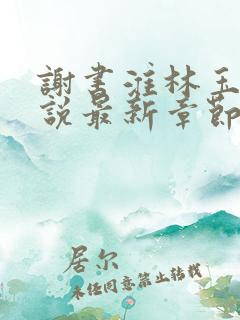 謝書淮林玉
說最新章節
居尔
未经同意禁止转载